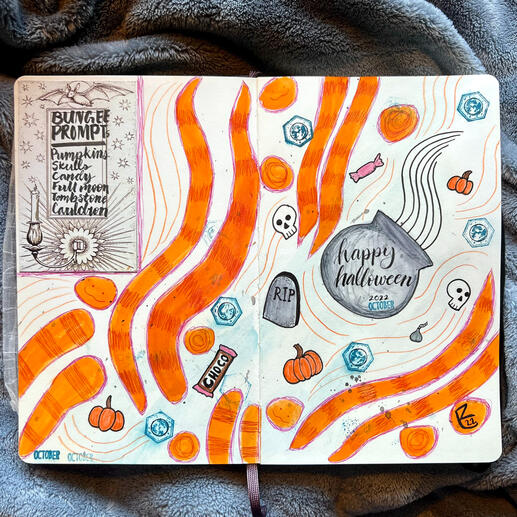 BUNGEE
PROMPTs
Pumpkins
Skulls
Candy
Full moon
Tombstone
Cauldren
happy
halloween
2022
OCTOBER
RIP
CHOCO
R
22
OCTOBER OCTOBER